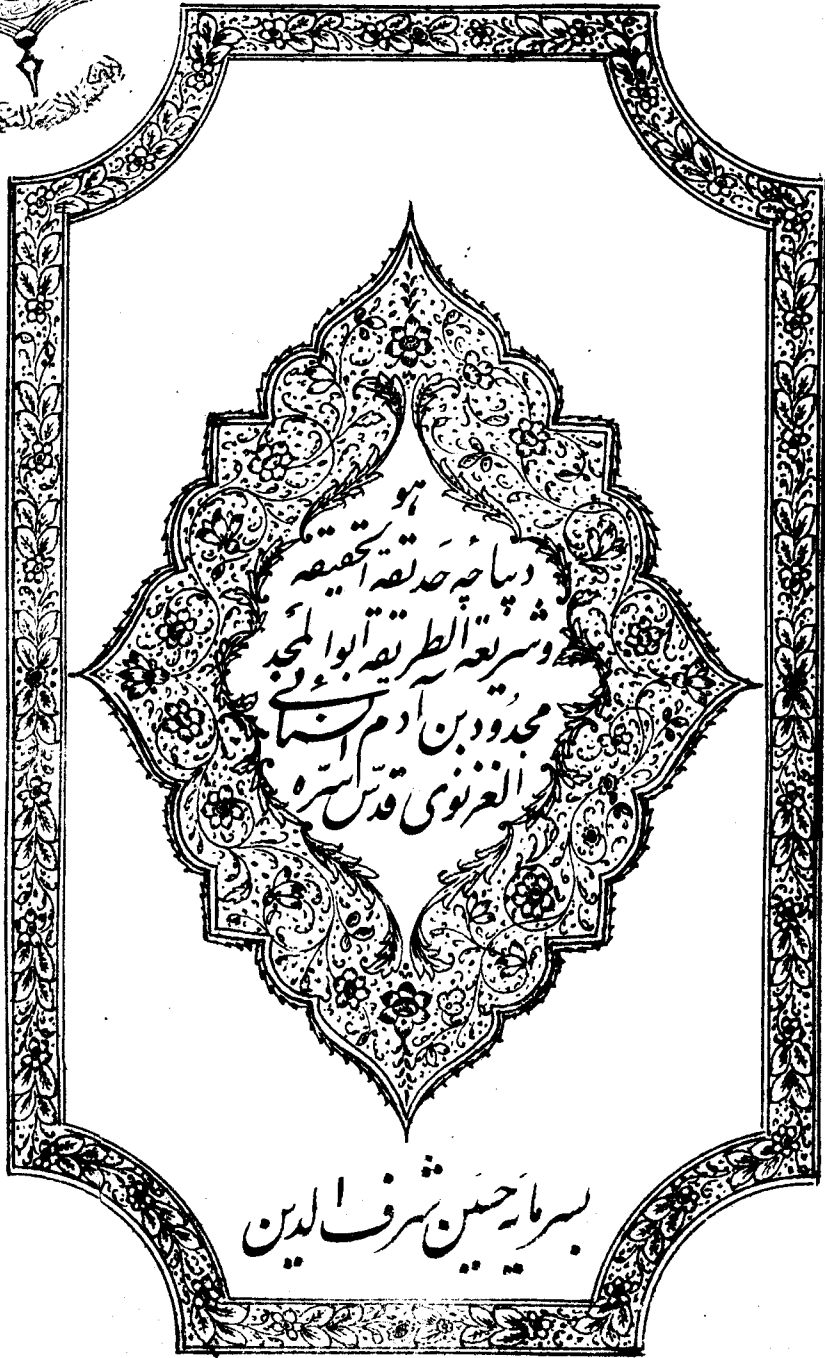 هو
دیباچه حَدیقة الحقیقه
وشریعة الطریقه ابوالمجد
مجدُود بن آدم السنائی
الغزنوی قدّس سرّه
بسرمایه حسین شرف الدین